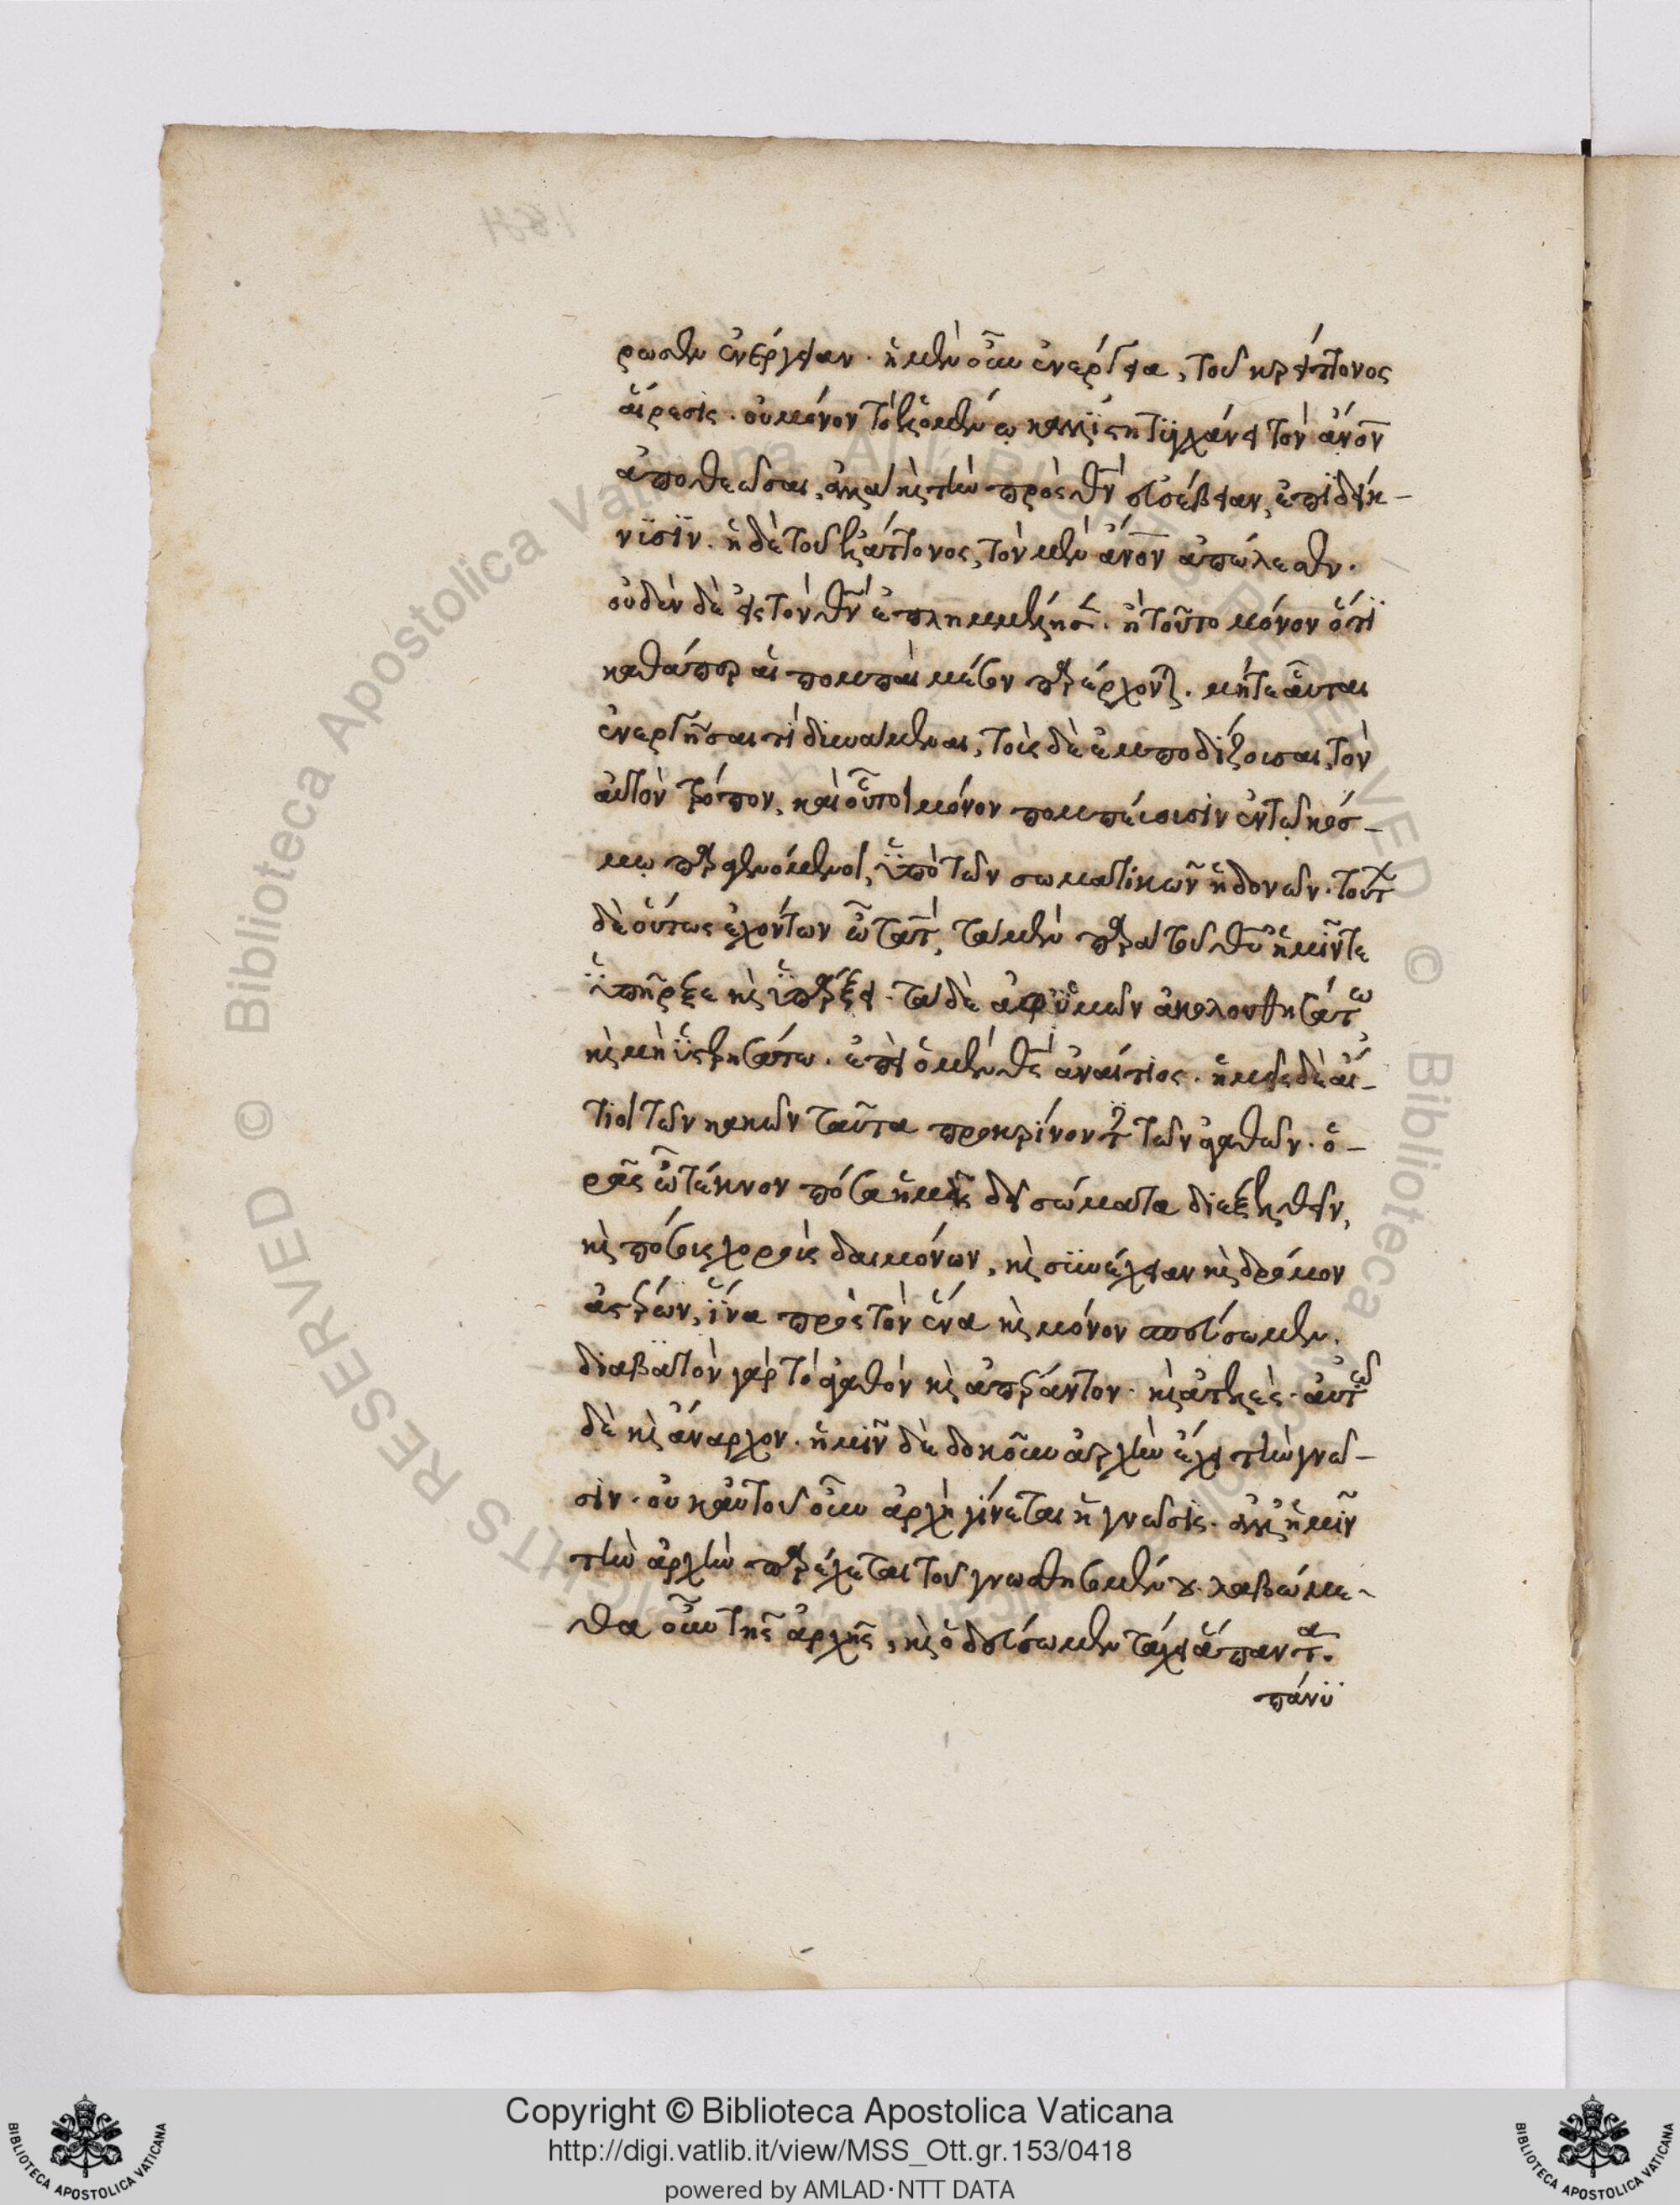 ρωσεν ἐνέργειαν. ἡ μὲν οὖν ἐνέργεια, τοῦ κρείττονος
αἵρεσις. οὐ μόνον τῷ ἑλομένῳ καλλίστη τϋγχάνει τὸν ἄνον
ἀποθεῶσαι, ἀλλὰ κὶ τὴν πρὸς θν εὐσέβειαν, ἐπιδείκ-
νϋσϊν. ἡ δὲ τοῦ ἐλάττονος, τὸν μὲν ἄνον ἀπώλεσεν.
οὐδὲν δὲ εἰς τὸν θν ἐπλημμέλησεν. ἢ τοῦτο μόνον ὅτι
καθάπερ αἱ πομπαὶ μέσον παρέρχονται. μήτε αὗται
ἐνεργῆσαι τὶ δυνάμεναι, τοὺς δὲ ἐμποδίζουσαι, τὸν
αὐτὸν τρόπον, καὶ οὗτοι μόνον πομπεύουσιν ἐν τῷ κόσ-
μῳ παραγενόμενοι, ὑπὸ τῶν σωματικῶν ἡδονῶν. τούτων
δὲ οὕτως ἐχόντων ὦ τὰτ, τὰ μὲν παρὰ τοῦ θυ ἡμῖν τε
ὑπῆρξε κὶ ὑπάρξει. τὰ δὲ ἀφ' ὑμῶν ἀκολουθησάτω
κὶ μὴ ὑστερησάτω. ἐπεὶ ὁ μὲν θς ἀναίτιος. ἡμεῖς δὲ αἴ-
τιοι τῶν κακῶν ταῦτα προκρίνοντες τῶν ἀγαθῶν. ὁ-
ρᾶς ὦ τέκνον πόσα ἡμᾶς δεῖ σώματα διεξελθεῖν,
κὶ πόσους χοροὺς δαιμόνων, κὶ συνέχειαν κὶ δρόμον
ἀστέρων, ἵνα πρὸς τὸν ἕνα κὶ μόνον σπεύσωμεν.
διαβατὸν γὰρ τὸ ἀγαθὸν κὶ ἀπέραντον. κὶ ἀτελὲς. αὐτῷ
δὲ κὶ ἄναρχον. ἡμῖν δὲ δοκοῦν ἀρχὴν ἔχει τὴν γνῶ-
σιν. οὐκ αὐτοῦ οὖν ἀρχὴ γίνεται ἡ γνῶσις. ἀλλ' ἡμῖν
τὴν ἀρχὴν παρέχεται τοῦ γνωσθησομένου. λαβώμε-
θα οὖν τῆς ἀρχῆς, κὶ ὁδεύσωμεν τάχει ἅπαντα.
πάνϋ
Copyright © Biblioteca Apostolica Vaticana
http://digi.vatlib.it/view/MSS_Ott.gr.153/0418
powered by AMLAD·NTT DATA